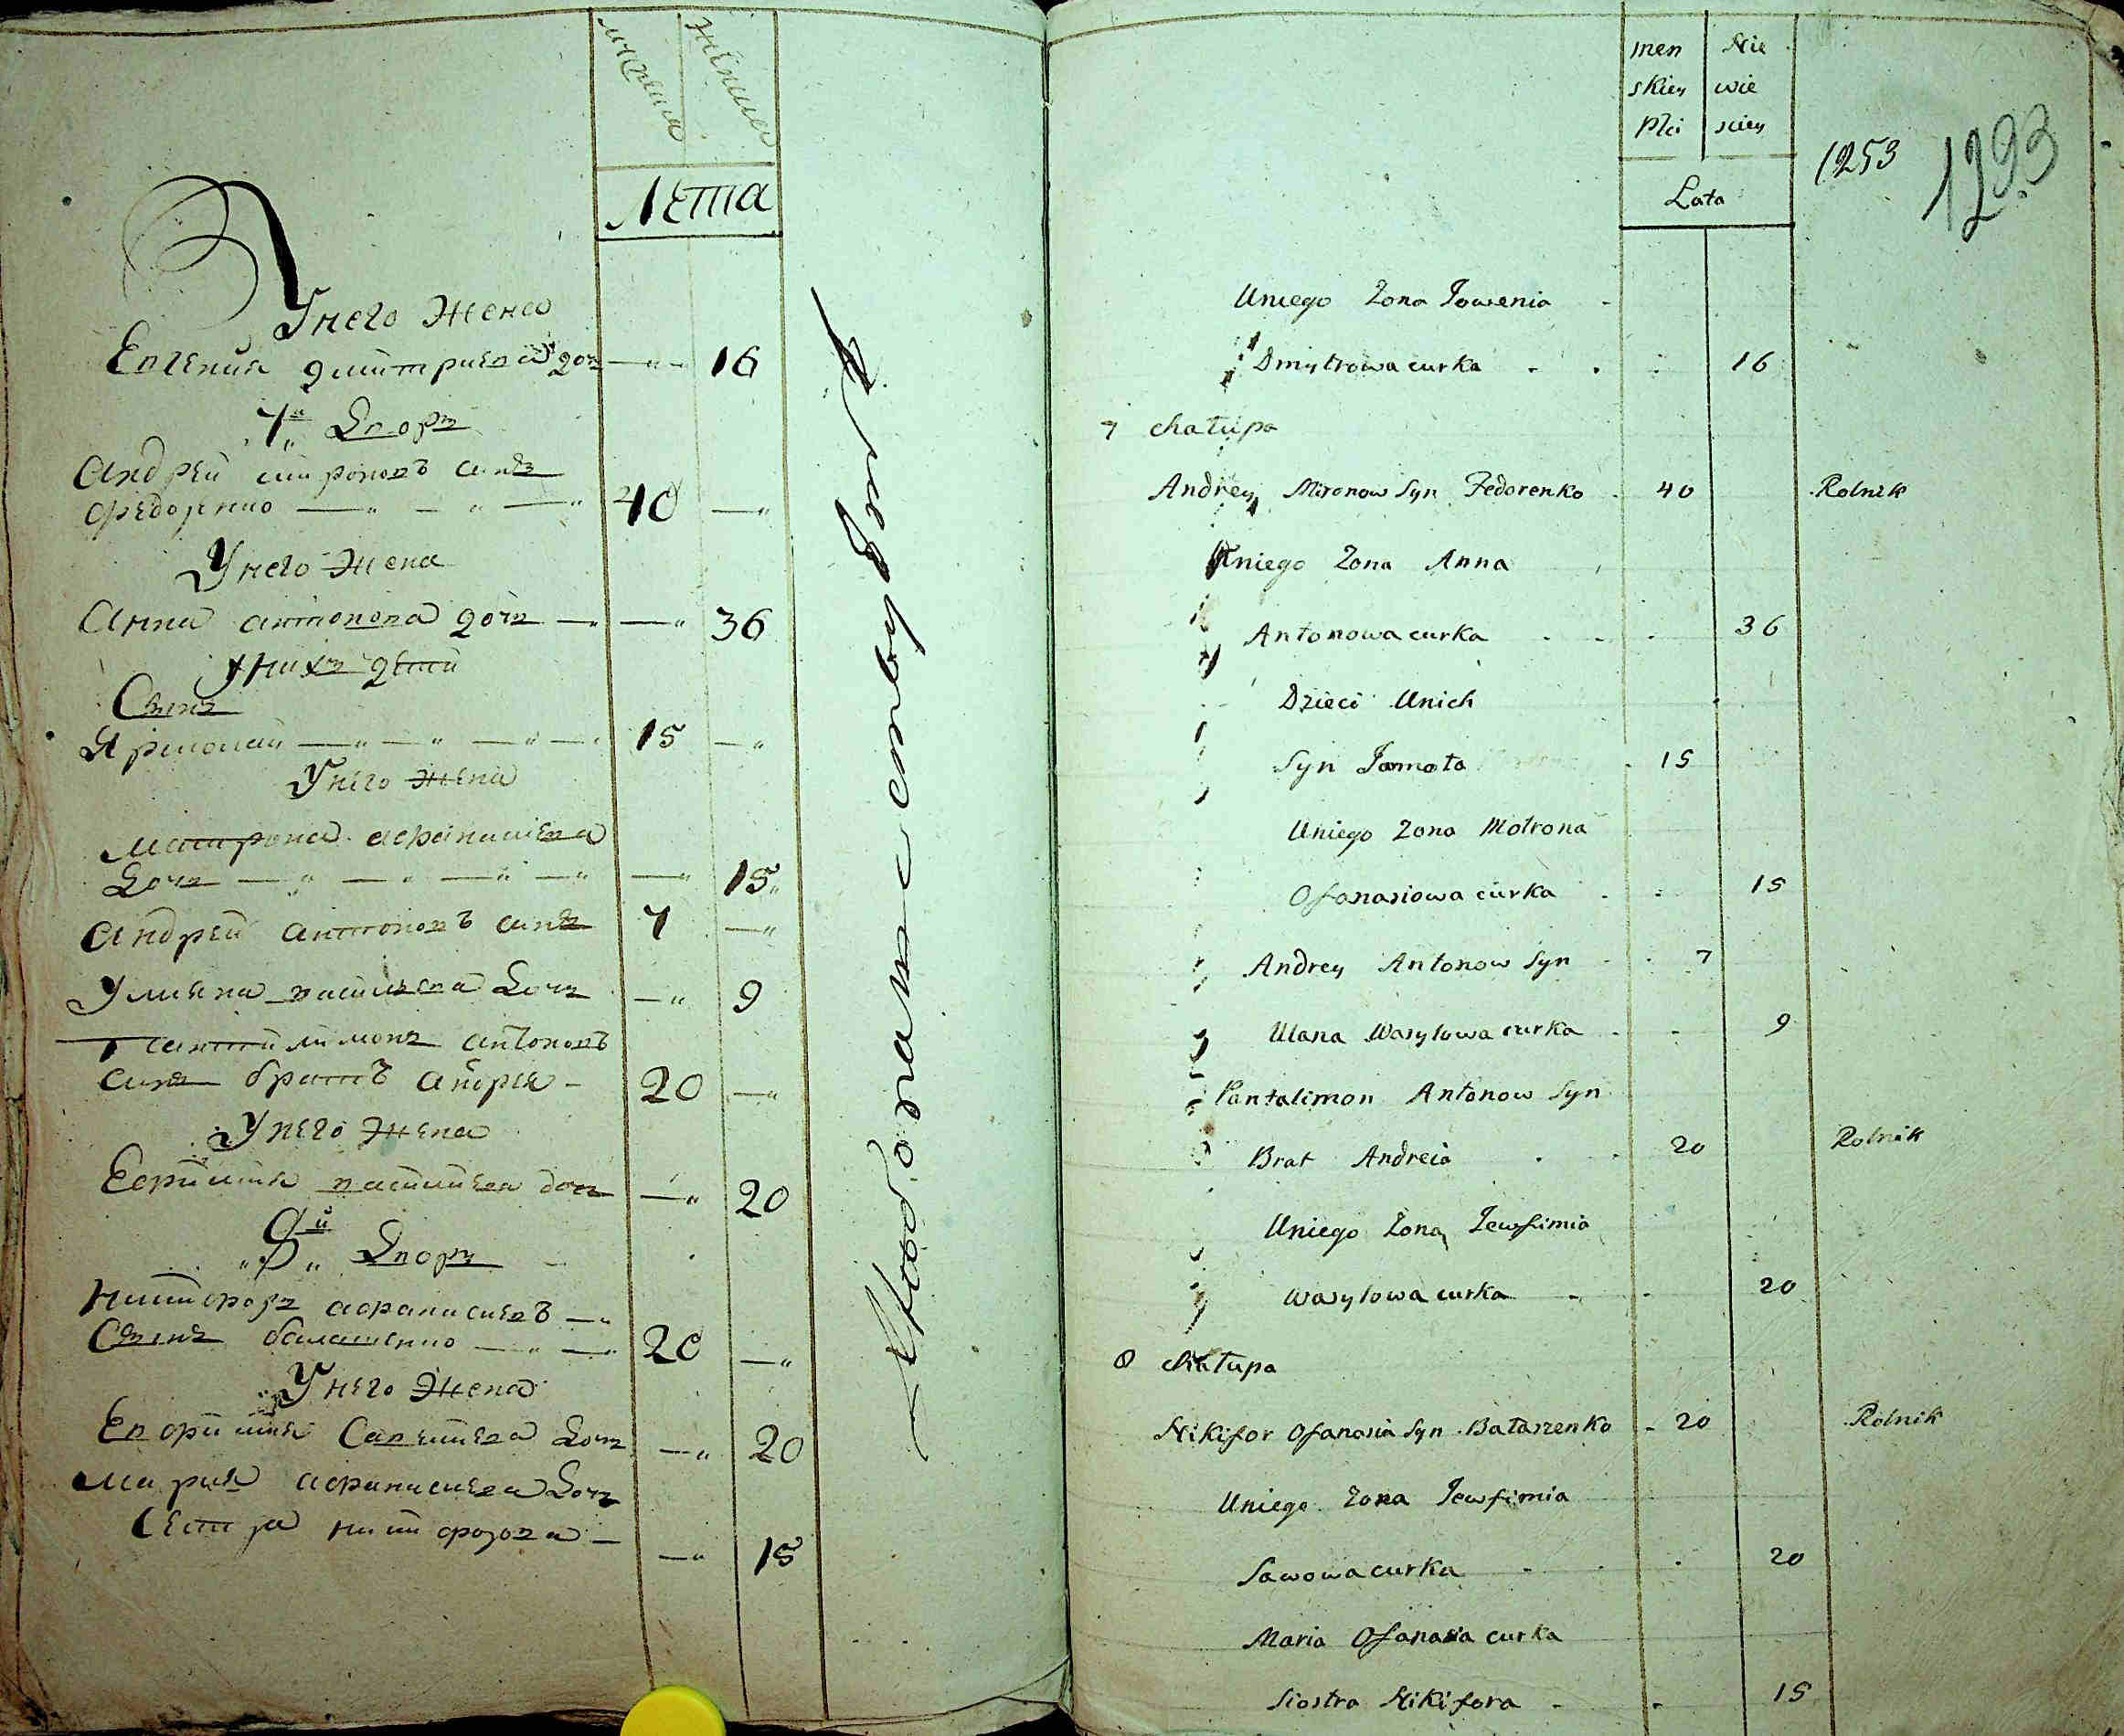 мужеска
женска
Лета
У него жена
Евгения дмитриева доч 16
7й Двор
Андрей миронов синъ
федоренко 40
У него жена
Анна антонова доч 36
У них дети
Синъ
Ярмолай 15
У него жена
Матрона афанасиева
Доч 15
Андрей антонов синъ 7
Улияна василева Доч 9
Пантилимон антонов
синъ брат андрея 20
У него жена
Ефимия василиева доч 20
8й Двор
Никифор афанасиев
Синъ балашенко 20
У него жена
Евфимия Савелиева Доч 20
Мария афанасиева Доч
Сестра никифорова 15
men Nie
skiey wie
Płci sciey
Lata
1253 1293
Uniego Zona Jowenia
Dmytrowa curka 16
7 chatupa
Andrey Mironow Syn Fedorenko 40 Rolnik
Uniego Zona Anna
Antonowa curka 36
Dzieci Unich
Syn Jamota 15
Uniego Zona Motrona
Ofanasiowa curka 15
Andrey Antonow Syn 7
Ulana Wasylowa curka 9
Pantalimon Antonow Syn
Brat Andreia 20 Rolnik
Uniego Zona Jewfimia
Wasylowa curka 20
8 chatupa
Nikifor Ofanasia Syn Bataszenko 20 Rolnik
Uniego Zona Jewfimia
Sawowa curka 20
Maria Ofanasia curka
Siostra Nikifora 15